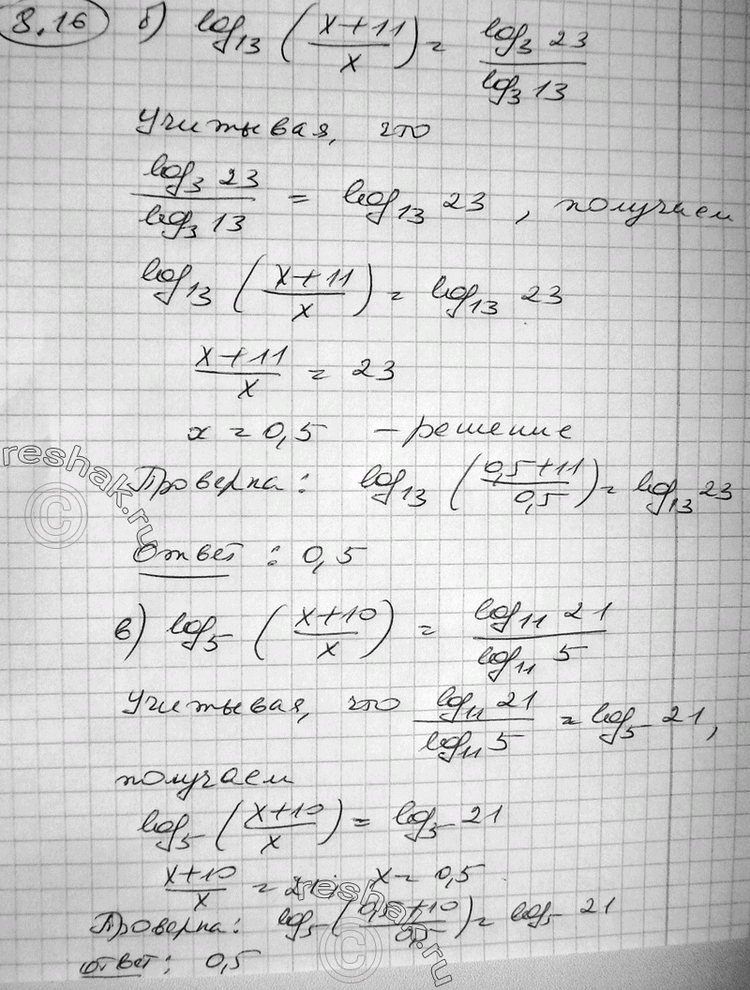 8.16 б) log₁₃ ((x+11)/x) = (log₃ 23)/(log₃ 13)
Учитывая, что
(log₃ 23)/(log₃ 13) = log₁₃ 23, получаем
log₁₃ ((x+11)/x) = log₁₃ 23
(x+11)/x = 23
x = 0,5 – решение
Проверка: log₁₃ ((0,5+11)/0,5) = log₁₃ 23
Ответ: 0,5
в) log₅ ((x+10)/x) = (log₁₁ 21)/(log₁₁ 5)
Учитывая, что (log₁₁ 21)/(log₁₁ 5) = log₅ 21,
получаем
log₅ ((x+10)/x) = log₅ 21
(x+10)/x = 21; x = 0,5
Проверка: log₅ ((0,5+10)/0,5) = log₅ 21
ответ: 0,5
reshak.ru
©
reshak.ru
©